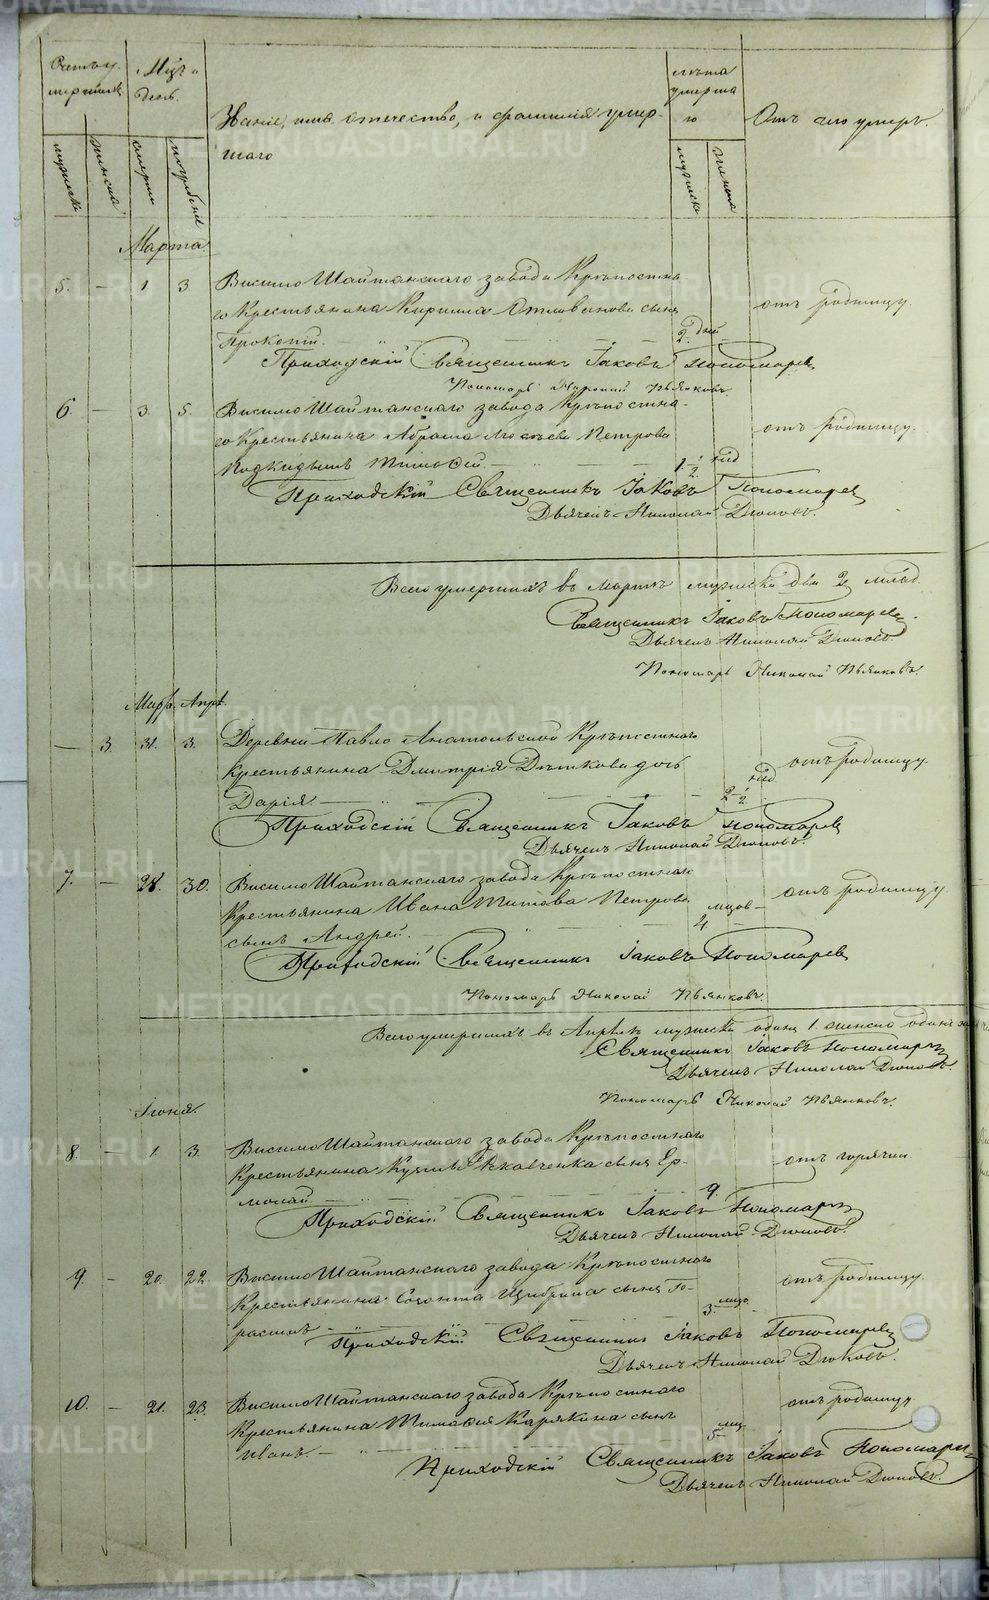 Счетъ у-
мершихъ
Мѣс. и
день.
Званіе, имя, отечество, и фамилія умер-
шаго
лѣта
умерша
го
Отъ чего умеръ.
мужеска
женска
смерти
погребенія
мужеска
женска
Марта
5. — 1 3 Висимо Шайтанскаго завода Крѣпостна-
го Крестьянина Кирилла сынъ
Прокопій. 2. дней отъ родимцу.
Приходскій Священникъ Іаковъ Пономаревъ
Пономарь Николай Пьянковъ
6. — 3. 5. Висимо Шайтанскаго завода Крѣпостна-
го Крестьянина Абрама Петрова отъ родимцу.
Подкидышъ Тимофей. 1 1/2 нед
Приходскій Священникъ Іаковъ Пономаревъ
Дьячекъ Николай Дюковъ.
Всего умершихъ въ Мартѣ мужеска два 2 млад.
Священникъ Іаковъ Пономаревъ
Дьячекъ Николай Дюковъ.
Пономарь Николай Пьянковъ.
Март. Апрѣ.
— 3. 31. 3. Деревни Павло Анатольской Крѣпостнаго
Крестьянина Димитрія дочь отъ родимцу.
Дарія. 2 1/2 нед
Приходскій Священникъ Іаковъ Пономаревъ
Дьячекъ Николай Дюковъ.
7. — 28. 30. Висимо Шайтанскаго завода Крѣпостнаго
Крестьянина Ивана Титова Петрова отъ родимцу
сынъ Андрей. 4 мѣсов
Приходскій Священникъ Іаковъ Пономаревъ
Пономарь Николай Пьянковъ.
Всего умершихъ въ Апрѣлѣ мужеска одинъ 1 женска одна
Священникъ Іаковъ Пономаревъ
Дьячекъ Николай Дюковъ.
Пономарь Николай Пьянковъ.
Іюня.
8. — 1. 3. Висимо Шайтанскаго завода Крѣпостнаго
Крестьянина Кузьмы сынъ Ер- отъ горячки.
молай 9.
Приходскій Священникъ Іаковъ Пономаревъ
Дьячекъ Николай Дюковъ.
9. — 20. 22. Висимо Шайтанскаго завода Крѣпостнаго отъ родимцу.
Крестьянина Созонта сынъ Ге-
расимъ 3. мѣс.
Приходскій Священникъ Іаковъ Пономаревъ
Дьячекъ Николай Дюковъ.
10. — 21. 23. Висимо Шайтанскаго завода Крѣпостнаго отъ родимцу
Крестьянина Тимофея Карякина сынъ
Иванъ. 5 мѣс
Приходскій Священникъ Іаковъ Пономаревъ
Дьячекъ Николай Дюковъ.
METRIKI.GASO-URAL.RU